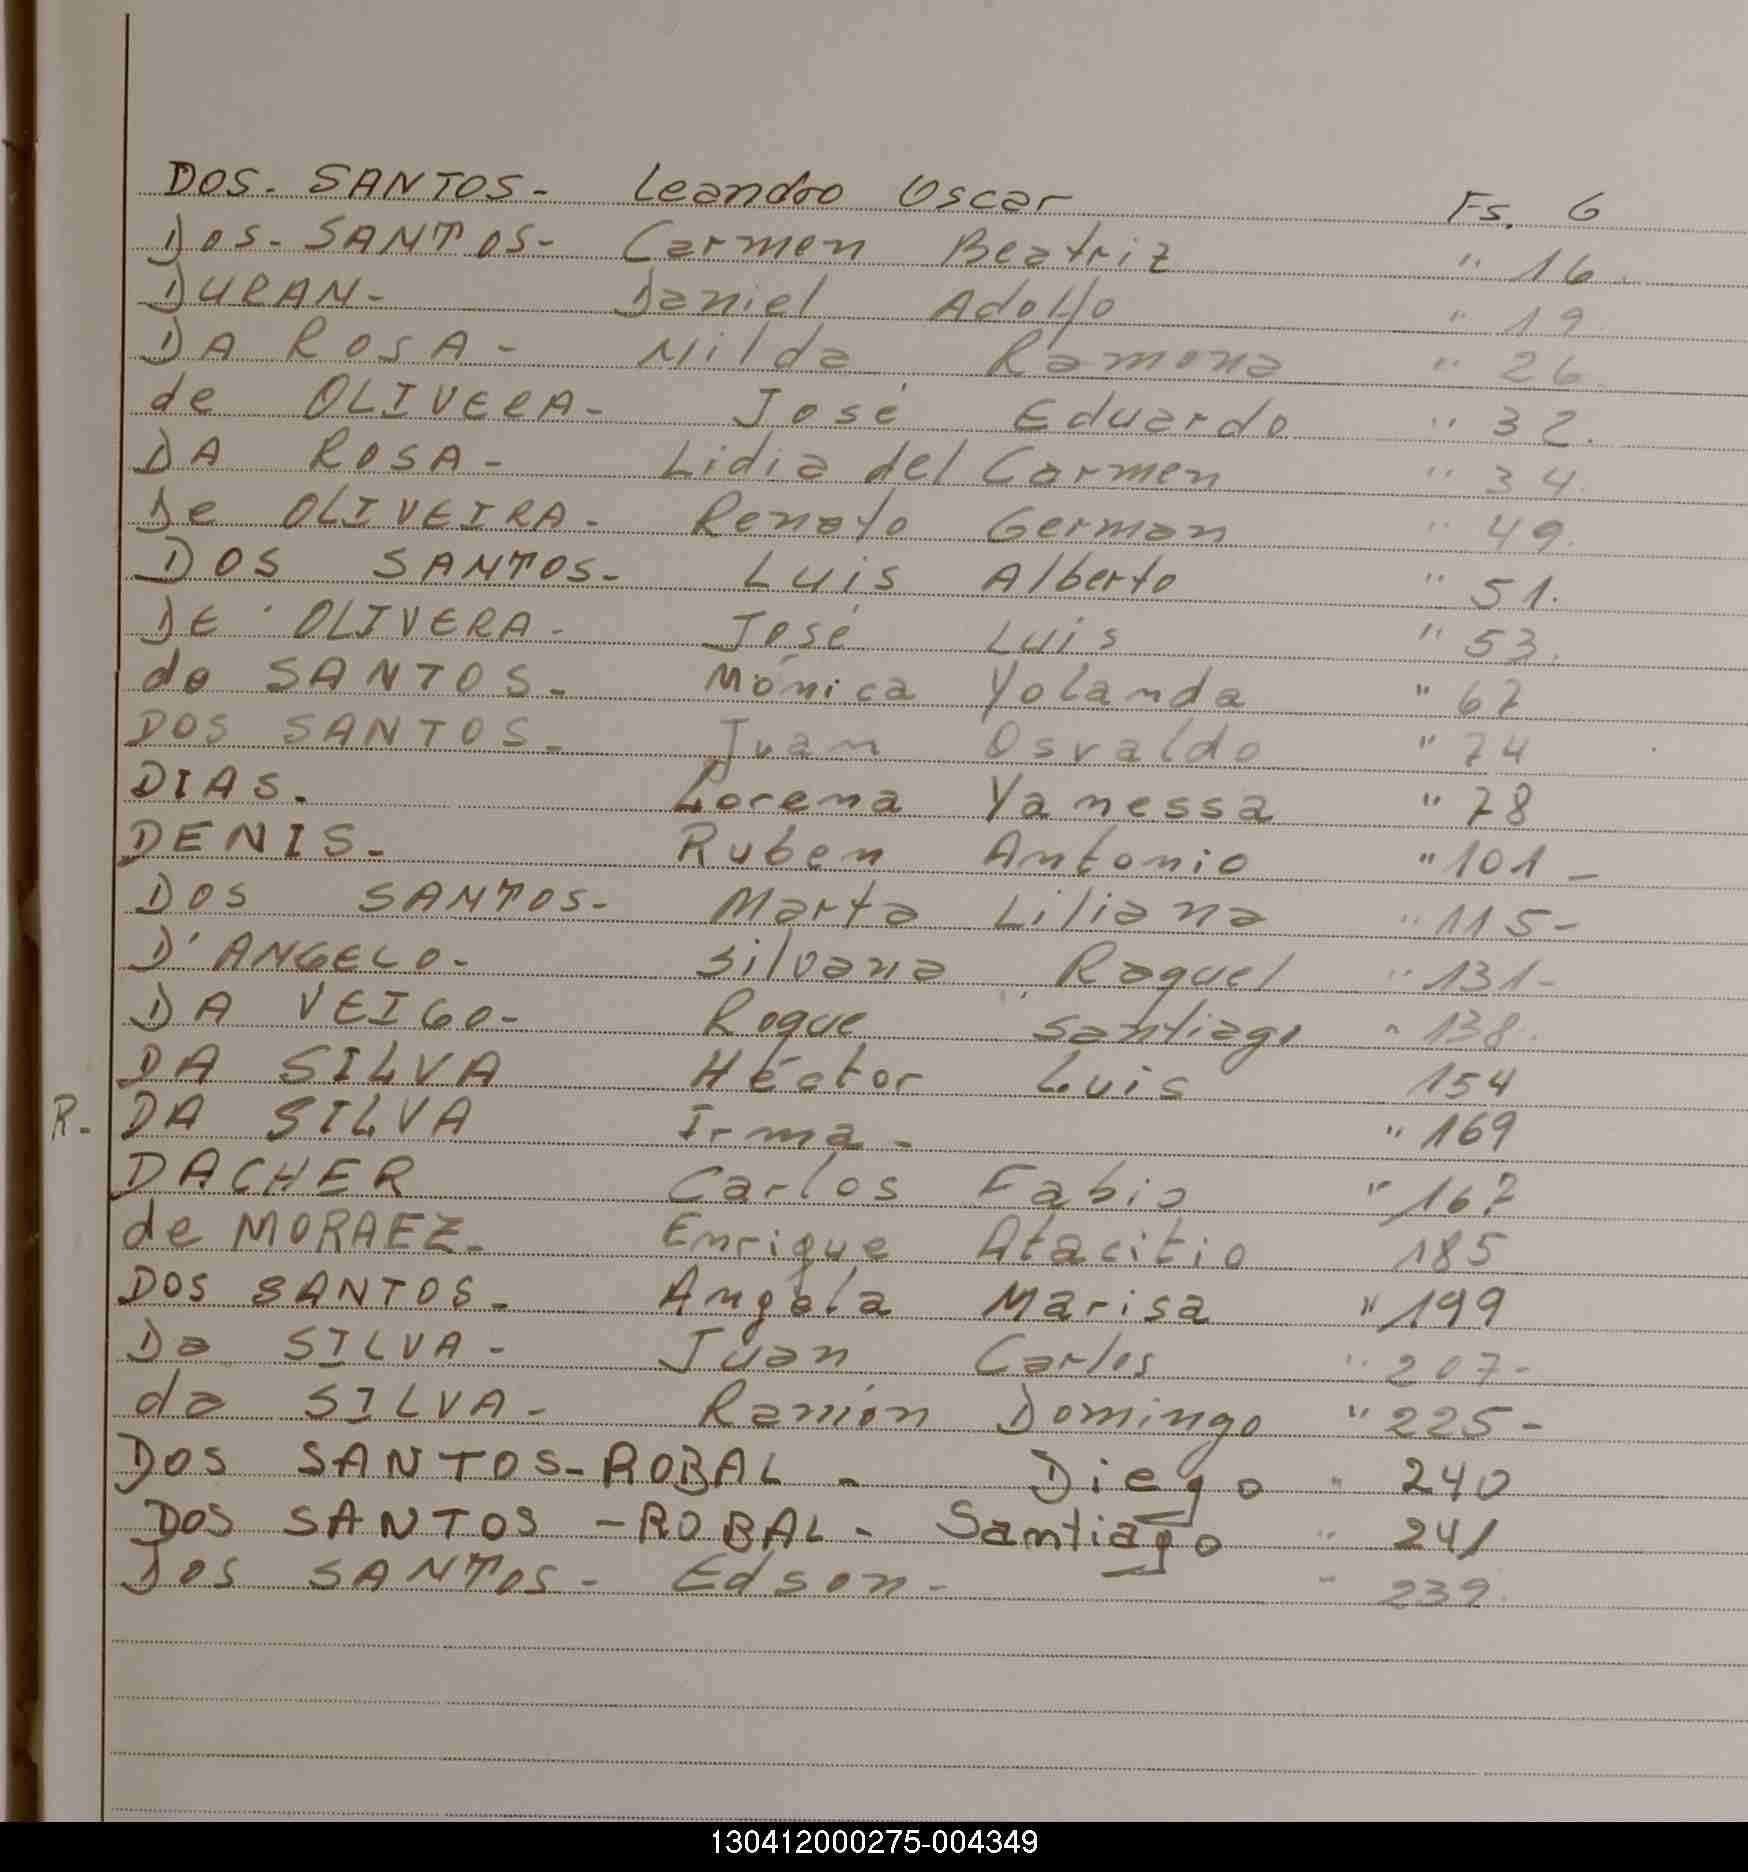 DOS- SANTOS- Leandro Oscar Fs. 6
DOS- SANTOS- Carmen Beatriz " 16
DURAN- Daniel Adolfo " 19
DA ROSA- Nilda Ramona " 26.
de OLIVERA- José Eduardo " 32.
DA ROSA- Lidia del Carmen " 34.
De OLIVEIRA- Renato German " 49.
DOS SANTOS- Luis Alberto " 51.
DE OLIVERA- José Luis " 53.
do SANTOS- Mónica Yolanda " 67
DOS SANTOS- Juan Osvaldo " 74
DIAS. Lorena Vanessa " 78
DENIS- Ruben Antonio " 101 -
DOS SANTOS- Marta Liliana " 115-
D'ANGELO- Silvana Raquel " 131-
DA VEIGO- Roque Santiago " 138.
DA SILVA Héctor Luis 154
R. DA SILVA Irma- " 169
DACHER Carlos Fabio " 167
de MORAEZ- Enrique Atacitio 185
DOS SANTOS- Angela Marisa " 199
Da SILVA- Juan Carlos " 207-
da SILVA- Ramión Domingo " 225-
DOS SANTOS-ROBAL- Diego " 240
DOS SANTOS -ROBAL- Santiago " 241
Dos SANTOS- Edson- " 239.
130412000275-004349